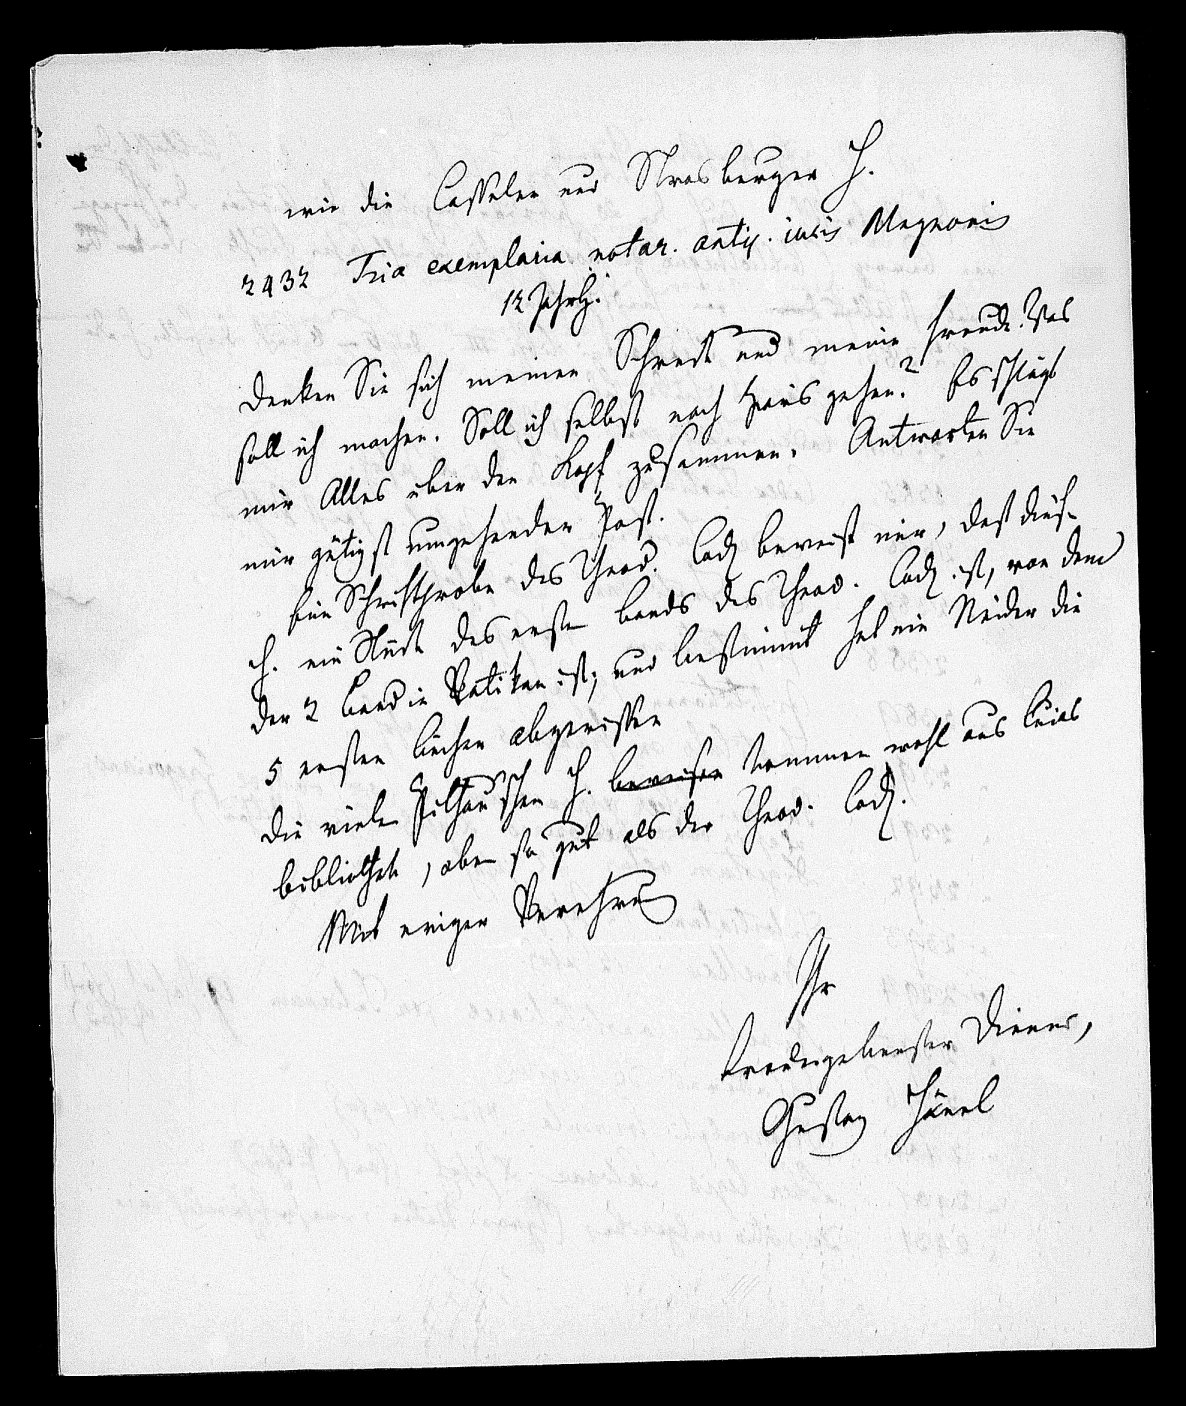 wie die Casseler und Strasburger H.
2432 Tria exemplaria notar. antiq. iuris Magnonis
12 Jahrh.
Denken Sie sich meinen Schreck und meine Freude. Was
soll ich machen. Soll ich selbst nach Paris gehen? Es schlägt
mir Alles über den Kopf zusammen. Antworten Sie
mir gütigst umgehender Post.
Eine Schriftprobe des Theod. Cod. beweist mir, daß dies.
H. ein Stück des ersten Bands des Theod. Cod. ist, von dem
der 2 Band im Vatikan ist; und bestimmt hat ein Neider die
5 ersten Bücher abgerissen
Die vielen Pithou'schen H. beweisen kommen wohl aus Cuias
Bibliothek, eben so gut als der Theod. Cod.
Mit ewiger Verehrung
Ihr
treuergebenster Diener,
Gustav Hänel